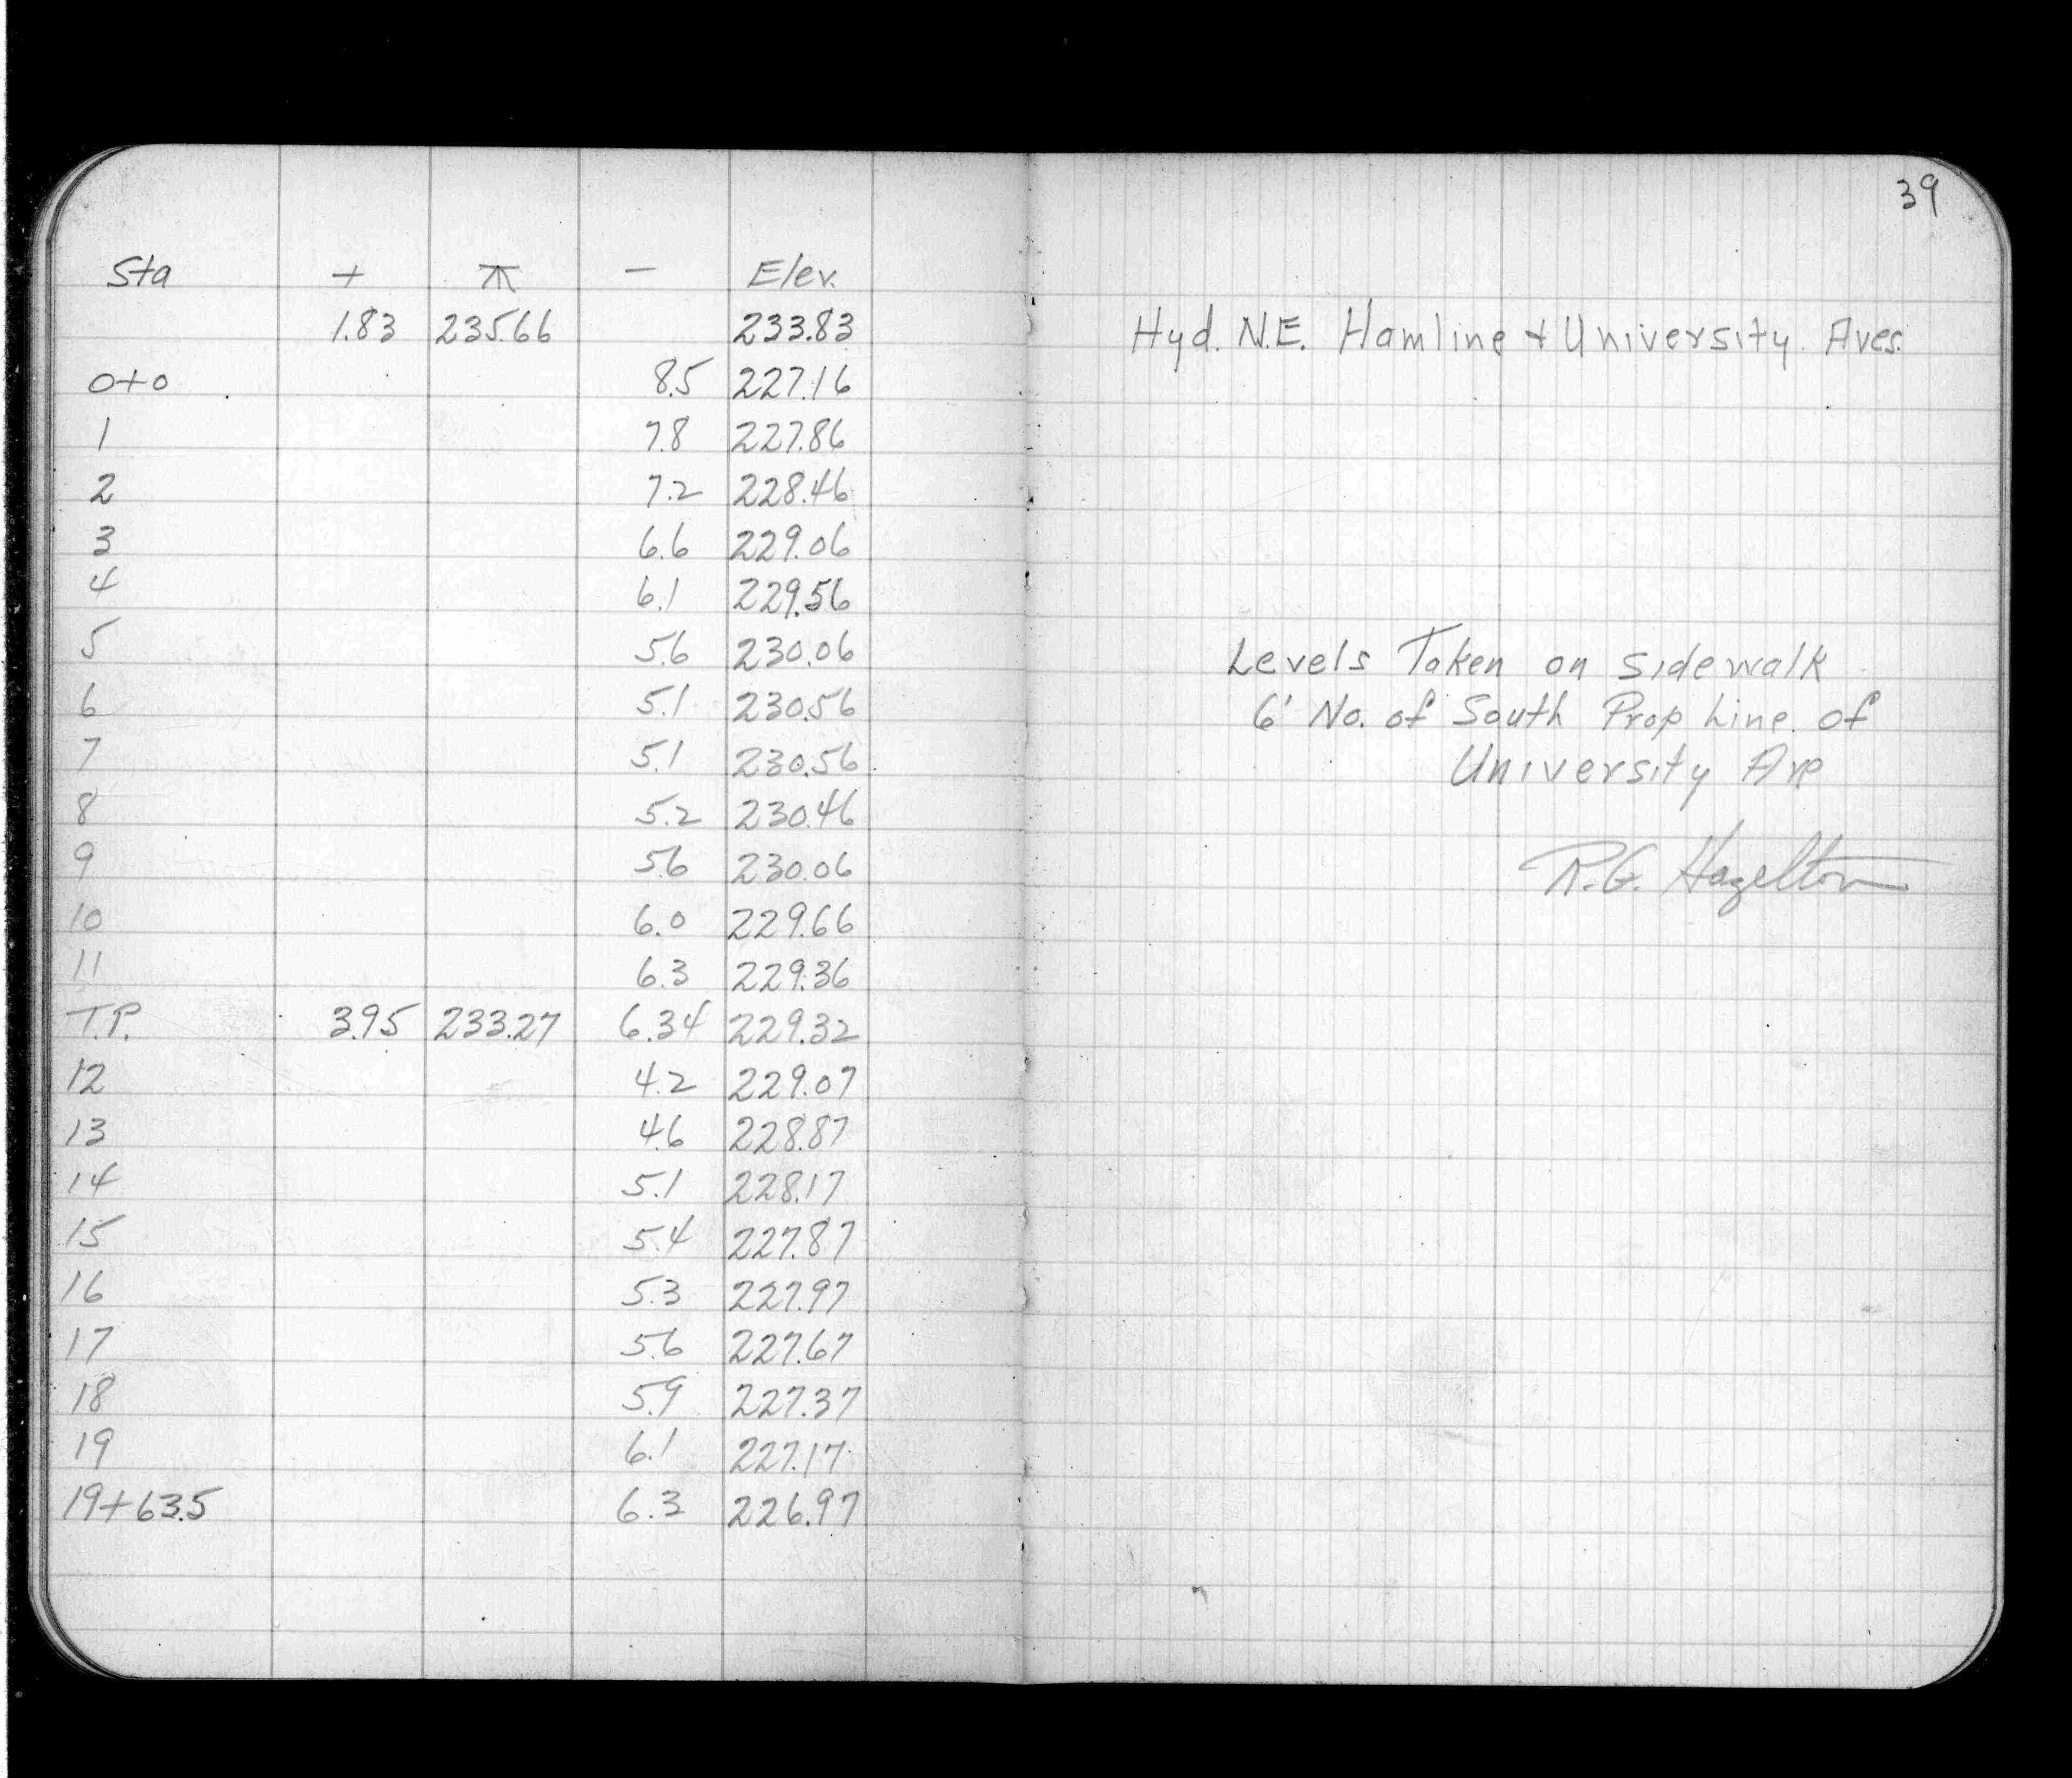 39
Sta + ⊼ - Elev.
1.83 235.66 233.83 Hyd. N.E. Hamline + University Aves.
0+0 8.5 227.16
1 7.8 227.86
2 7.2 228.46
3 6.6 229.06
4 6.1 229.56
5 5.6 230.06 Levels Taken on Sidewalk
6 5.1 230.56 6' No. of South Prop Line of
7 5.1 230.56 University Ave
8 5.2 230.46
9 5.6 230.06 R.G. Hazelton
10 6.0 229.66
11 6.3 229.36
T.P. 3.95 233.27 6.34 229.32
12 4.2 229.07
13 4.6 228.87
14 5.1 228.17
15 5.4 227.87
16 5.3 227.97
17 5.6 227.67
18 5.9 227.37
19 6.1 227.17
19+63.5 6.3 226.97